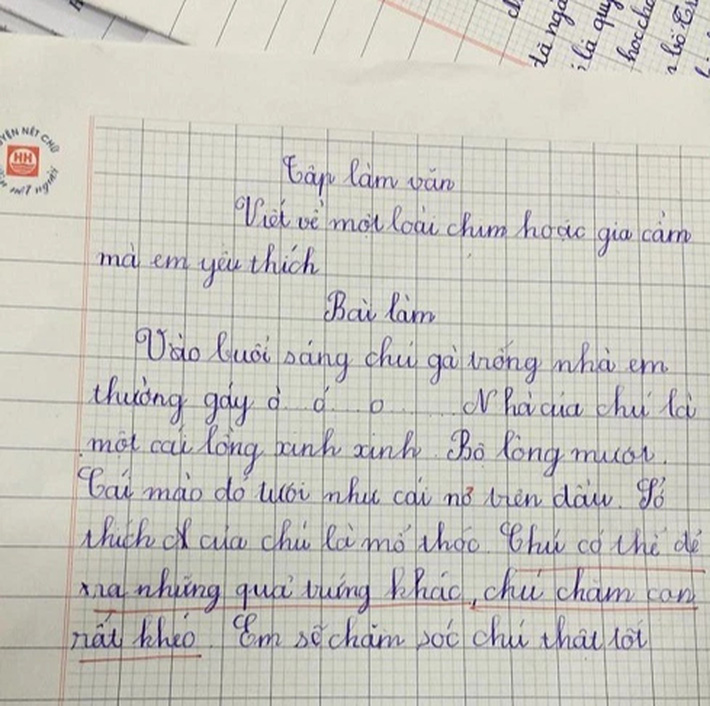 đã ngà
là quy
hoc cho
YỆN NÉT CHỮ
HH
nết người
Tập làm văn
Viết về một loài chim hoặc gia cầm
mà em yêu thích
Bài làm
Vào buổi sáng chú gà trống nhà em
thường gáy ò .. ó .. o .... Nhà của chú là
một cái lồng xinh xinh. Bộ lông mượt.
Cái mào đỏ tươi như cái nơ trên đầu. Sở
thích của chú là mổ thóc. Chú có thể đẻ
ra những quả trứng khác, chú chăm con
rất khéo. Em sẽ chăm sóc chú thật tốt